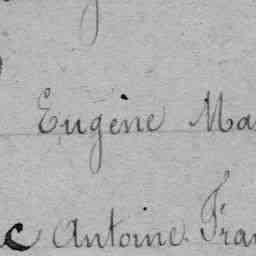 Eugène Ma
c Antoine Fran